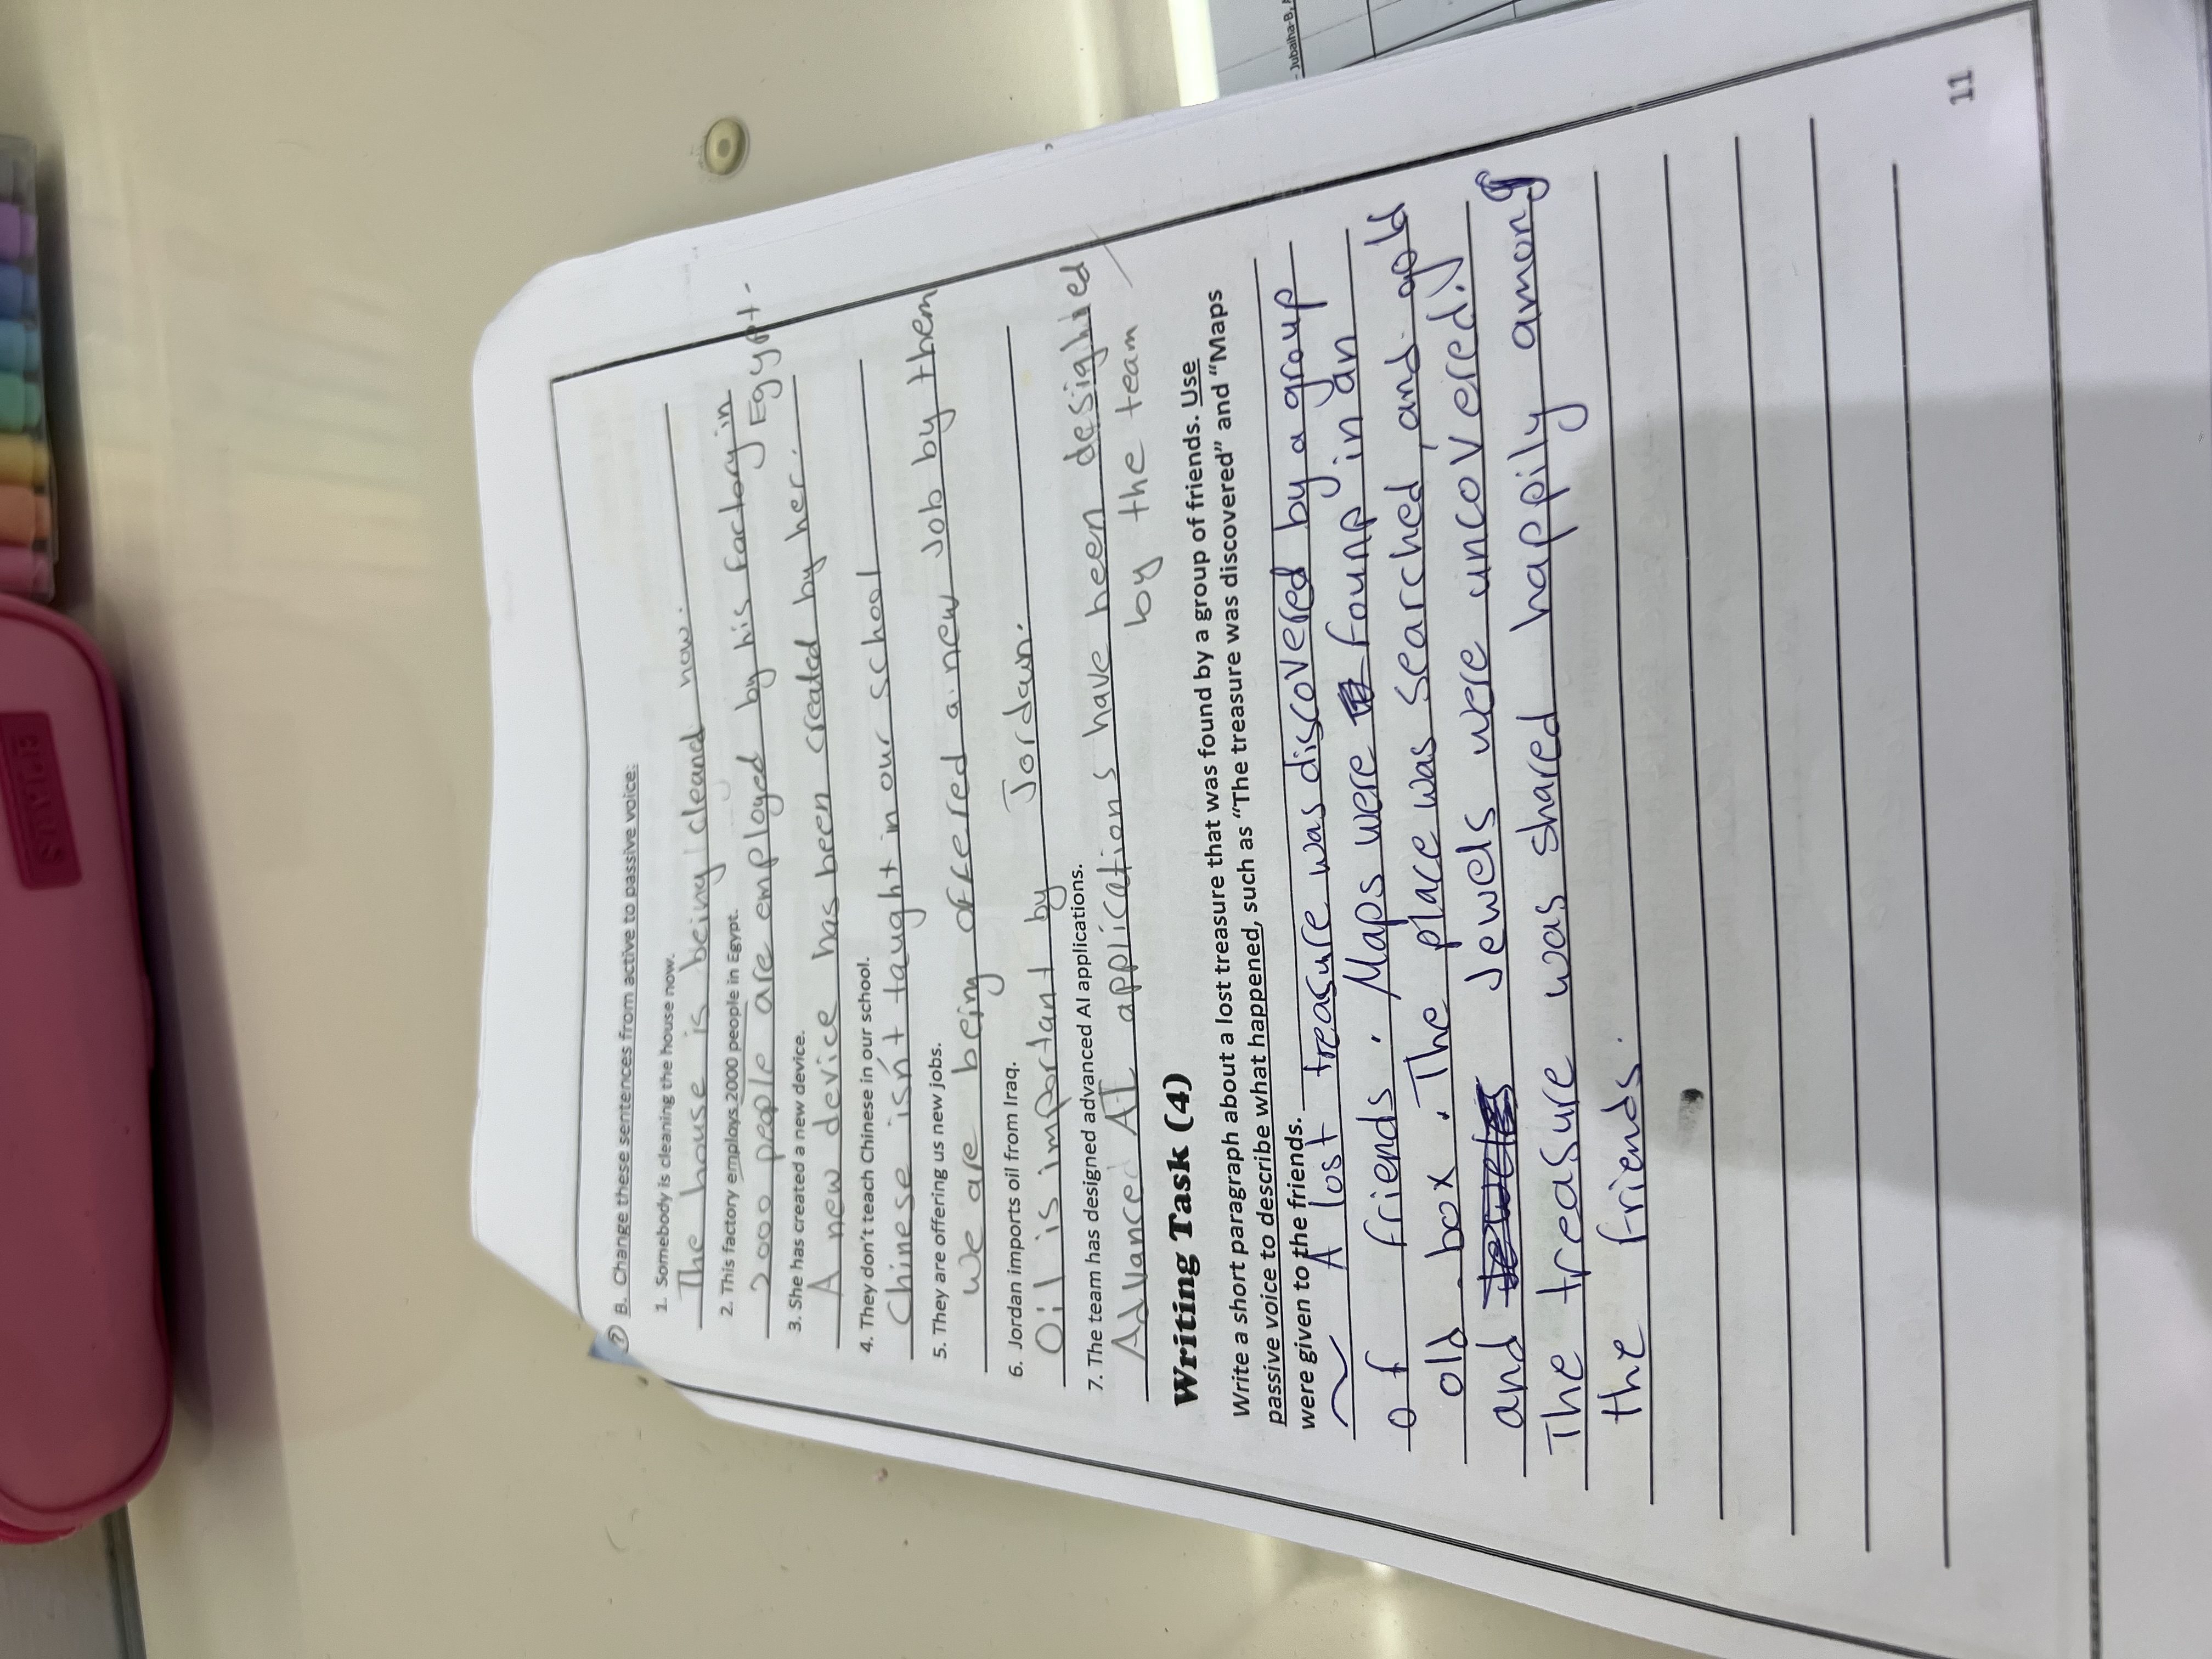 B. Change these sentences from active to passive voice:
1. Somebody is cleaning the house now.
The house is being cleand now.
2. This factory employs 2000 people in Egypt.
2000 people are employed by his factory in
Egypt.
3. She has created a new device.
A new device has been created by her.
4. They don't teach Chinese in our school.
Chinese isn't taught in our school
5. They are offering us new jobs.
we are being offered a new Job by them
6. Jordan imports oil from Iraq.
Oil is important by Jordan.
7. The team has designed advanced AI applications.
Advanced AI applications have been desighed
by the team
Writing Task (4)
Write a short paragraph about a lost treasure that was found by a group of friends. Use
passive voice to describe what happened, such as "The treasure was discovered" and "Maps
were given to the friends.
A lost treasure was discovered by a group
of friends. Maps were founp in an
old box. The place was searched, and gold
and Jewels were uncovered.
The treasure was shared happily among
the friends.
11
STAPLE
- Jubaiha-B, A